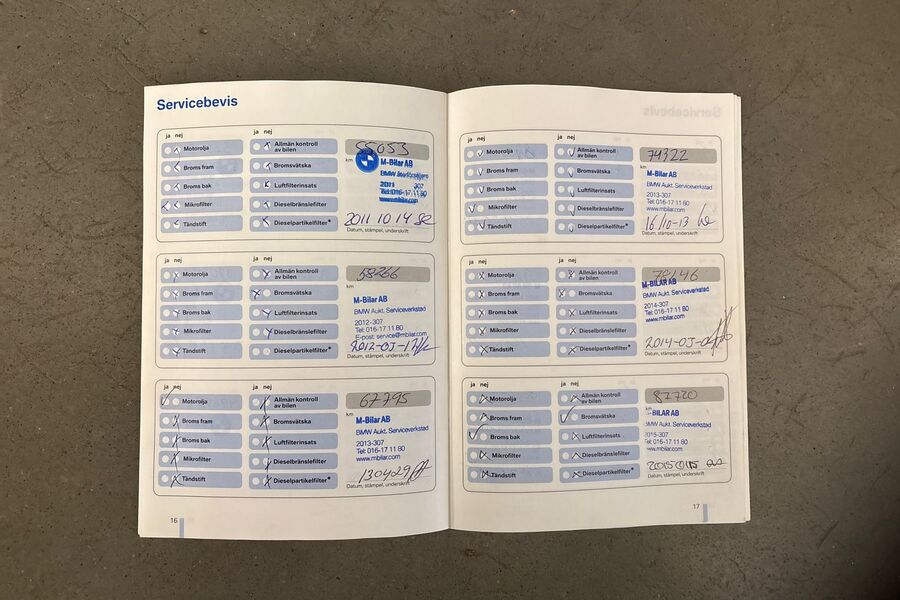 Servicebevis
ja nej
ja nej
Motorolja
Broms fram
Broms bak
Mikrofilter
Tändstift
Allmän kontroll
av bilen
Bromsvätska
Luftfilterinsats
Dieselbränslefilter
Dieselpartikelfilter*
55053
km
M-Bilar AB
2011 307
Tel: 016-17 11 80
www.mbilar.com
2011 10 14
Datum, stämpel, underskrift
ja nej
ja nej
Motorolja
Broms fram
Broms bak
Mikrofilter
Tändstift
Allmän kontroll
av bilen
Bromsvätska
Luftfilterinsats
Dieselbränslefilter
Dieselpartikelfilter*
58266
km
M-Bilar AB
BMW Aukt. Serviceverkstad
2012-307
Tel: 016-17 11 80
E-post: service@mbilar.com
Datum, stämpel, underskrift
ja nej
ja nej
Motorolja
Broms fram
Broms bak
Mikrofilter
Tändstift
Allmän kontroll
av bilen
Bromsvätska
Luftfilterinsats
Dieselbränslefilter
Dieselpartikelfilter*
67795
km
M-Bilar AB
BMW Aukt. Serviceverkstad
2013-307
Tel: 016-17 11 80
www.mbilar.com
130429
Datum, stämpel, underskrift
16
ja nej
ja nej
Motorolja
Broms fram
Broms bak
Mikrofilter
Tändstift
Allmän kontroll
av bilen
Bromsvätska
Luftfilterinsats
Dieselbränslefilter
Dieselpartikelfilter*
74322
km
M-Bilar AB
BMW Aukt. Serviceverkstad
2013-307
Tel: 016-17 11 80
www.mbilar.com
16/10-13
Datum, stämpel, underskrift
ja nej
ja nej
Motorolja
Broms fram
Broms bak
Mikrofilter
Tändstift
Allmän kontroll
av bilen
Bromsvätska
Luftfilterinsats
Dieselbränslefilter
Dieselpartikelfilter*
78146
M-BILAR AB
BMW Aukt. Serviceverkstad
2014-307
Tel: 016-17 11 80
www.mbilar.com
Datum, stämpel, underskrift
ja nej
ja nej
Motorolja
Broms fram
Broms bak
Mikrofilter
Tändstift
Allmän kontroll
av bilen
Bromsvätska
Luftfilterinsats
Dieselbränslefilter
Dieselpartikelfilter*
87720
km
BILAR AB
BMW Aukt. Serviceverkstad
2015-307
Tel: 016-17 11 80
www.mbilar.com
Datum, stämpel, underskrift
17